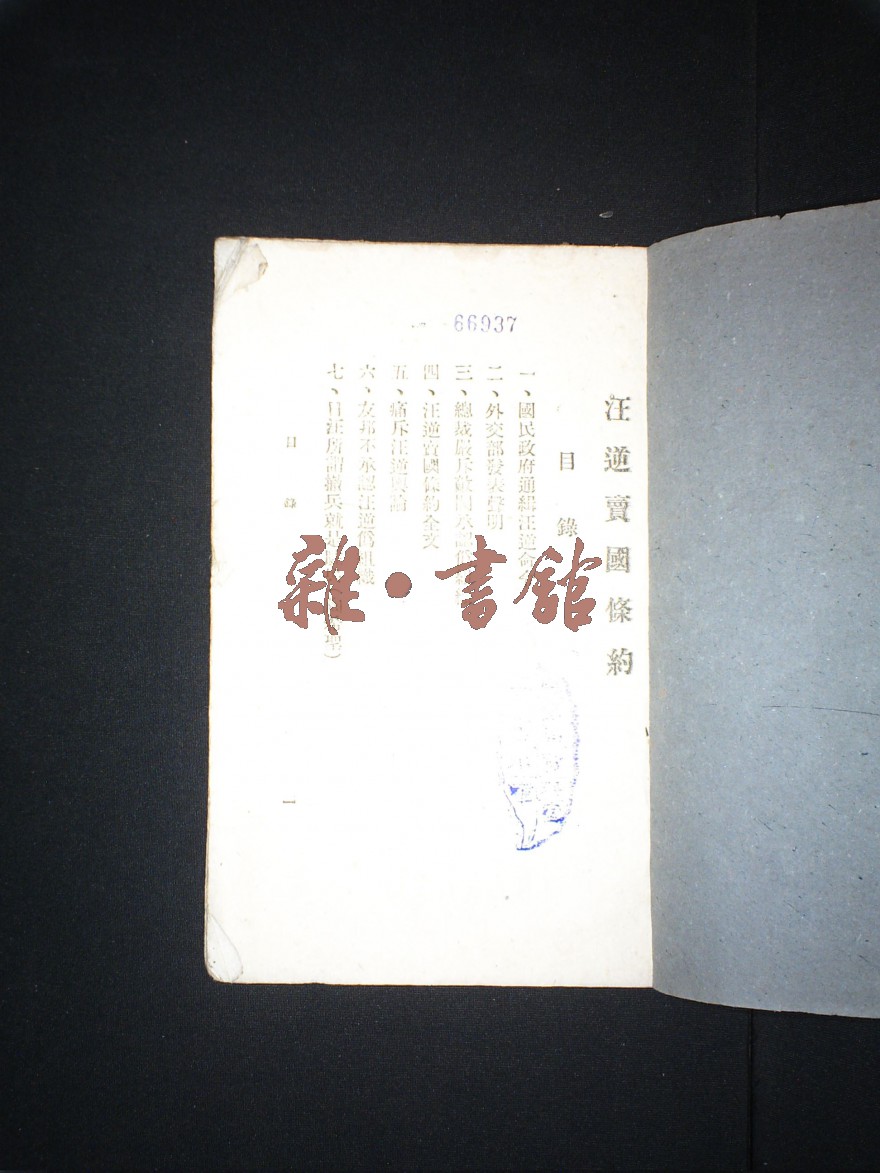 汪逆賣國條約
目錄
一、國民政府通緝汪逆命
二、外交部發表聲明
三、總裁嚴斥敵閥承認僞組
四、汪逆賣國條約全文
五、痛斥汪逆輿論
六、友邦不承認汪逆僞組織
七、日汪所謂撤兵就是
目錄
一
66937
雜·書館